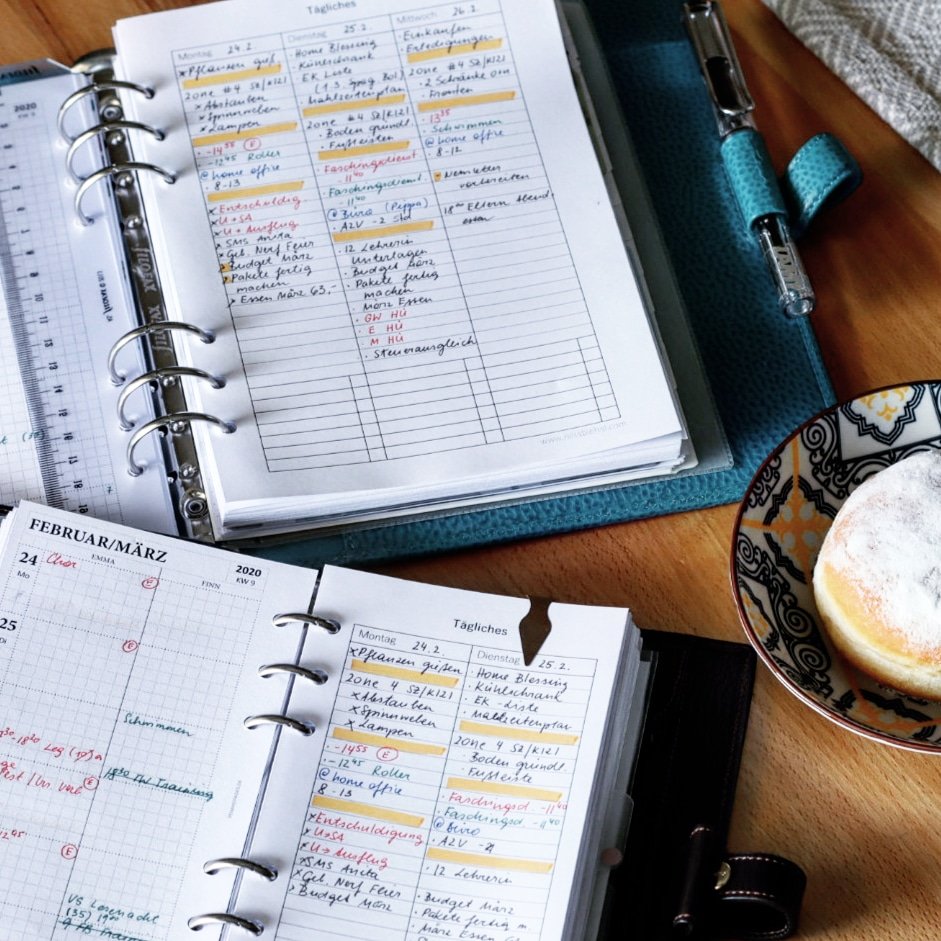 Tägliches
Montag 24.2.
× Pflanzen gieß.
zone #4 SZ/KIZI
× Abstauben
× Spinnweben
× Lampen
- 14⁵⁵ E
- 12⁴⁵ Roller
@ home office
8-13
× Entschuldig
× U → SA
× U → Ausflug
× SMS Anita
× Geb. Nerf Feier
Budget März
Pakete fertig
machen
> Essen März 65,-
Dienstag 25.2.
Home Blessing
· Kühlschrank
EK Liste
· Mahlzeitenplan
zone #4 SZ/KIZI
· Boden gründl.
· Fußleisten
Faschingsdienst
11⁴⁰
Faschingsdienst.
- 11⁴⁰
@ Büro (Pippa)
· A2V - 2 Std
· 12 Lehrerin
Unterlagen
· Budget März
· Pakete fertig
machen
· März Essen
· GW HÜ
· E HÜ
· M HÜ
· Steuerausgleich
Mittwoch 26.2.
Einkaufen
· Erledigungen
zone #4 SZ/KIZI
· 2 Schränke
· Fronten
· 13³⁵
· Schwimmen
@ home office
· 8-12
Newsletter
vorbereiten
18⁰⁰ Eltern Abend
essen
2020
KW 9
FEBRUAR/MÄRZ
2020
KW 9
24
Mo
Chor
EMMA
E
FINN
25
DI
E
Schwimmen
E
E
12⁴⁵
VS Lesenacht
(35) 19⁰⁰
Tägliches
Montag 24.2.
× Pflanzen gießen
zone 4 SZ/KIZI
× Abstauben
× Spinnweben
× Lampen
- 14⁵⁵ E
- 12⁴⁵ Roller
@ home office
8-13
× Entschuldigung
× U → SA
× U → Ausflug
× SMS Anita
× Geb. Nerf Feier
> Budget März
Dienstag 25.2.
Home Blessing
· Kühlschrank
· EK-Liste
· Mahlzeitenplan
zone 4 SZ/KIZI
· Boden gründl.
· Fußleiste
· Faschingsd. - 11⁴⁰
Faschingsd. - 11⁴⁰
@ Büro
· A2V - 2
· 12 Lehrerin
· Budget März
· Pakete fertig m
· März Essen